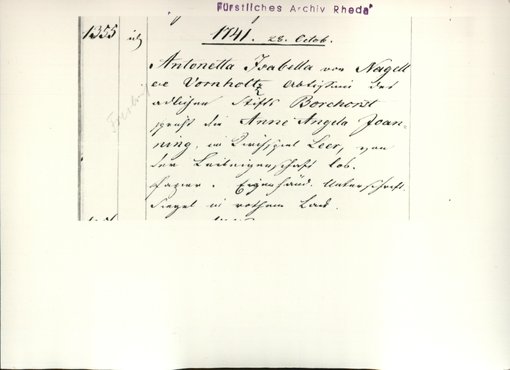 Fürstliches Archiv Rheda
1355
1741. 28. Octob.
Antonetta Isabella von Nagell
Vornholtz Äbtissin des
adlichen Stifts Borchorst
spricht die Anne Angela Joan-
ning, im Kirchspiel Leer, von
der Leibeigenschaft los.
Papier. Eigenhänd. Unterschrift.
Siegel in rothem Lack.